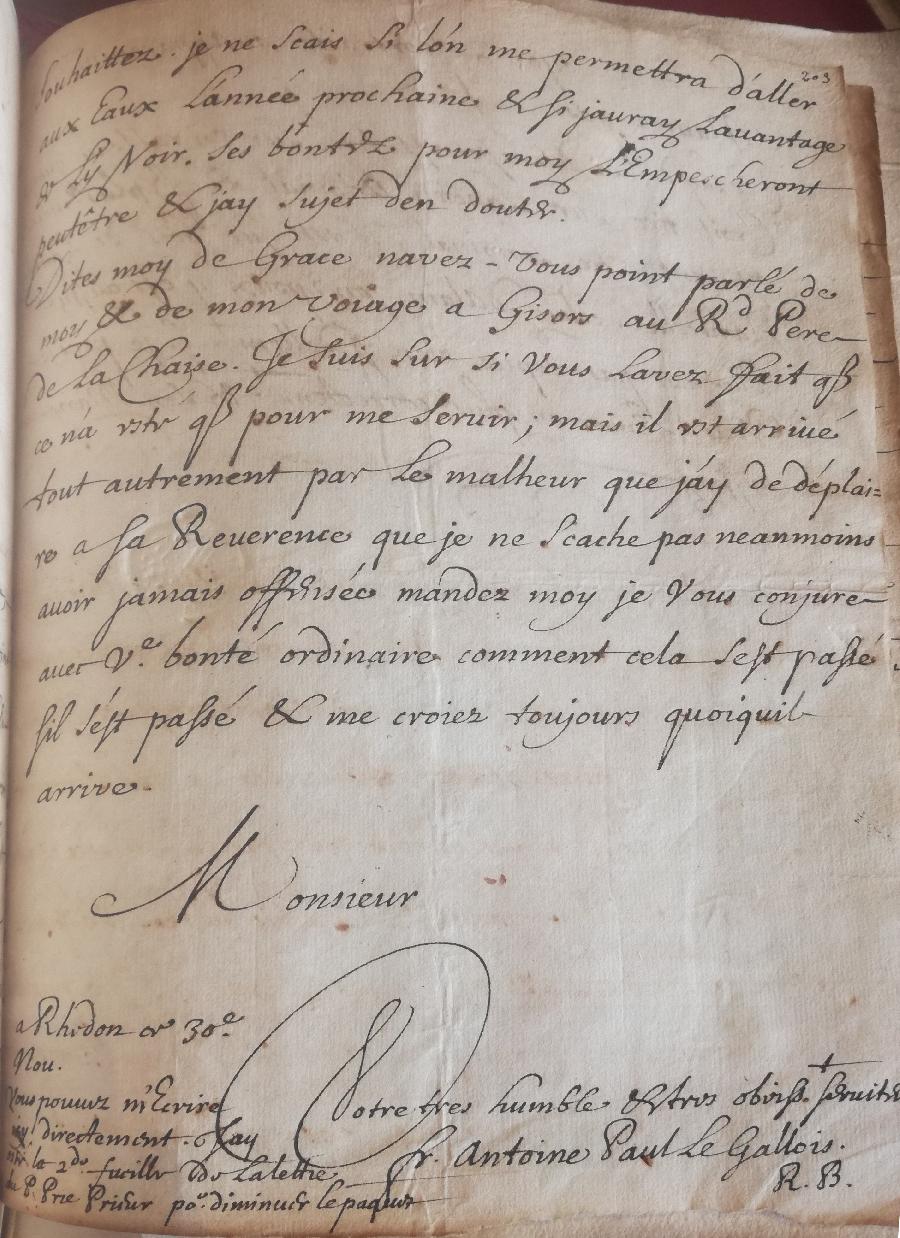 203
souhaittez. je ne scais si lón me permettra dáller
aux Eaux Lannée prochaine & si jauray Lavantage
de Ly Noir. Ses bontez pour moy L'Empescheront
peutêtre & jay sujet den douter.
Dites moy de Grace navez-Vous point parlé de
moy & de mon Voiage a Gisors au Rd Pere
de La Chaise. Je suis sur si Vous Lavez fait qß
ce ná esté qß pour me servir; mais il est arrivé
tout autrement par Le malheur que jáy de déplai=
re a sa Reverence que je ne scache pas neanmoins
avoir jamais offensée mandez moy je Vous conjure
avec Ve. bonté ordinaire comment cela sest passé
sil sést passé & me croiez toujours quoiquil
arrive.
Monsieur
a Rhedon ce 30e
Nov.
Vous pouvez m'Ecrire
icy directement. Jay
la 2de. fueille de La lettre
du P. Prieur po. diminuer le paquet
Votre tres humble & tres obeiss. serviteur
fr. Antoine Paul Le Gallois.
R. B.